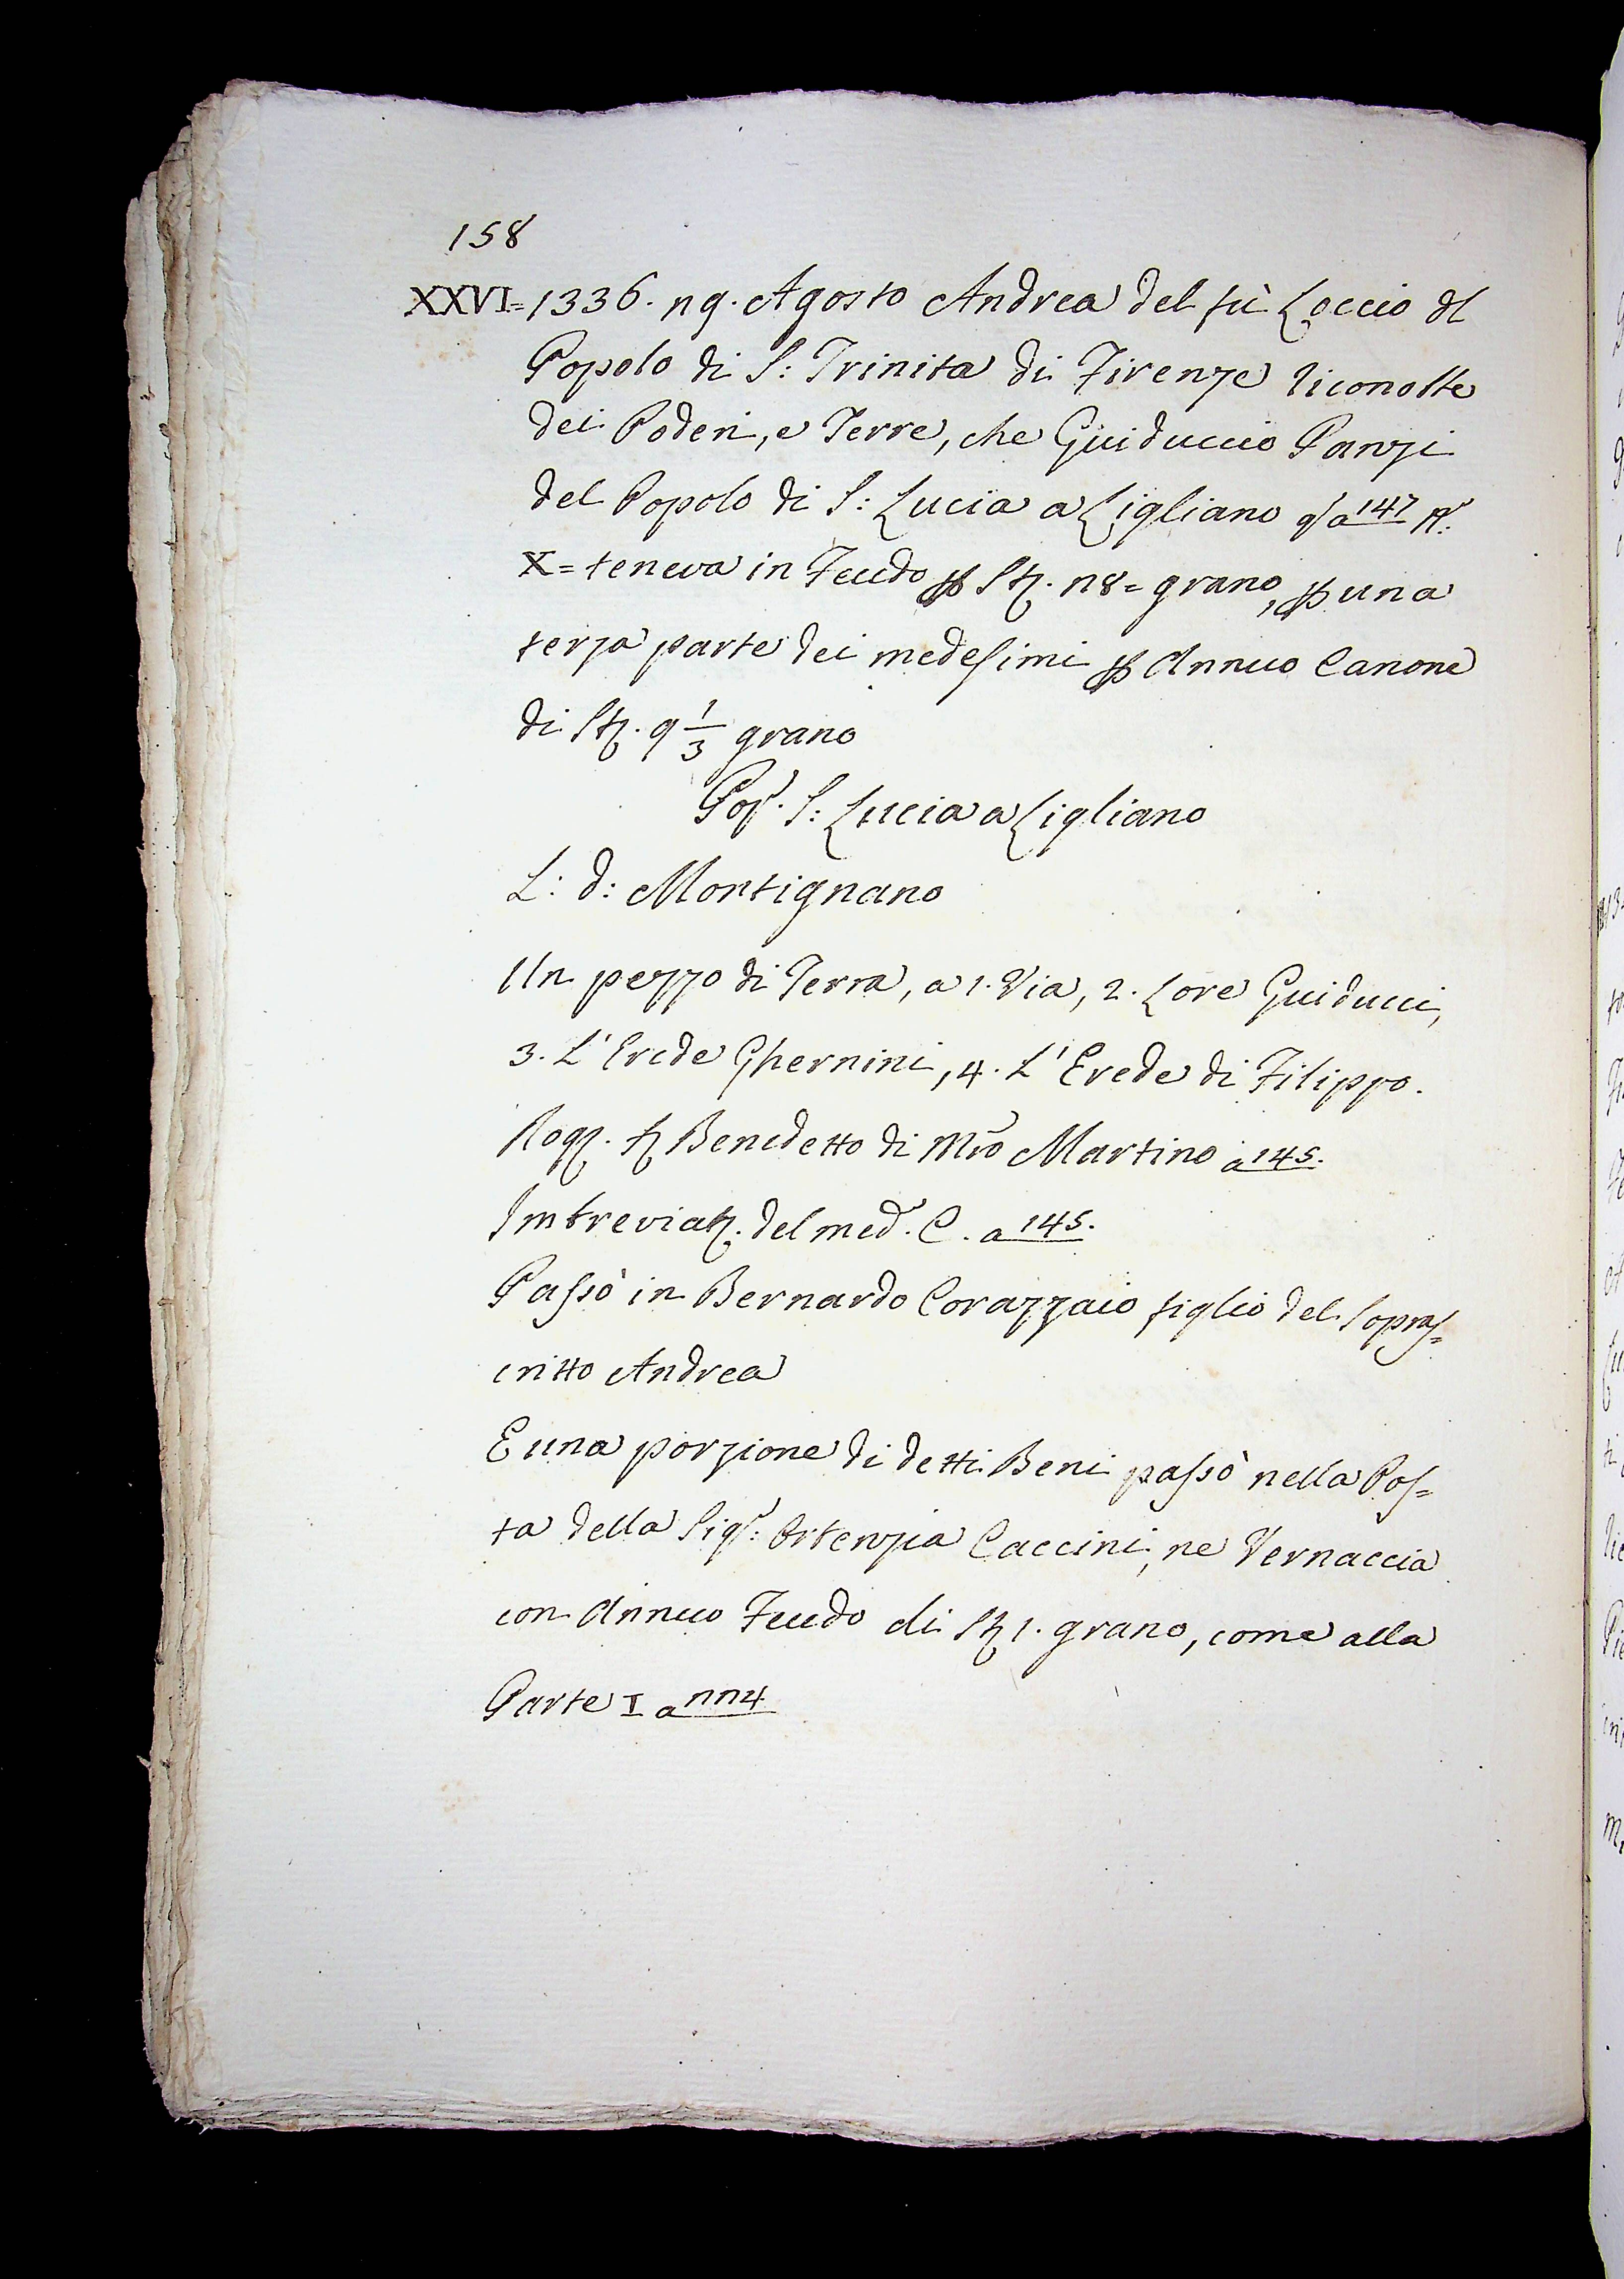 158
XXVI=1336. 19. Agosto Andrea del fù Coccio dl
Popolo di S: Trinita di Firenze riconosse
dei Poderi, e Terre, che Guiduccio Panzi
del Popolo di S: Lucia a Cigliano qto a 147 N.
X= teneva in Feudo p St. 28= grano, p una
terza parte dei medesimi p Annuo Canone
di St. 9 1/3 grano
Pop. S: Lucia a Cigliano
L: d: Montignano
Un pezzo di Terra, a 1. Via, 2. Core Guiducci,
3. L' Erede Ghernini, 4. L' Erede di Filippo.
Rog. Benedetto di Mro Martino a 145.
Imbreviat. del med. C. a 145.
Passò in Bernardo Corazzaio figlio del Sopras=
critto Andrea
E una porzione di detti Beni passò nella Pos=
ta della Sigr: Ortenzia Caccini, ne Vernaccia
con Annuo Feudo di St 1. grano, come alla
Parte I a